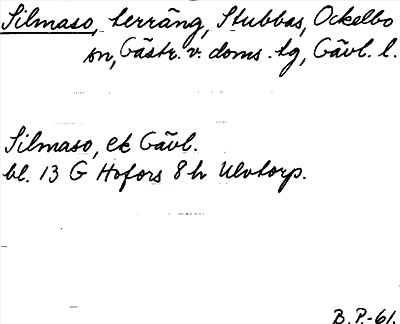 Silmaso, terräng, Stubbas, Ockelbo
sn, Gästr. v. doms. tg, Gävl. l.
Silmaso, ek Gävl.
bl. 13 G Hofors 8 h Ulvtorp.
B.P.-61.